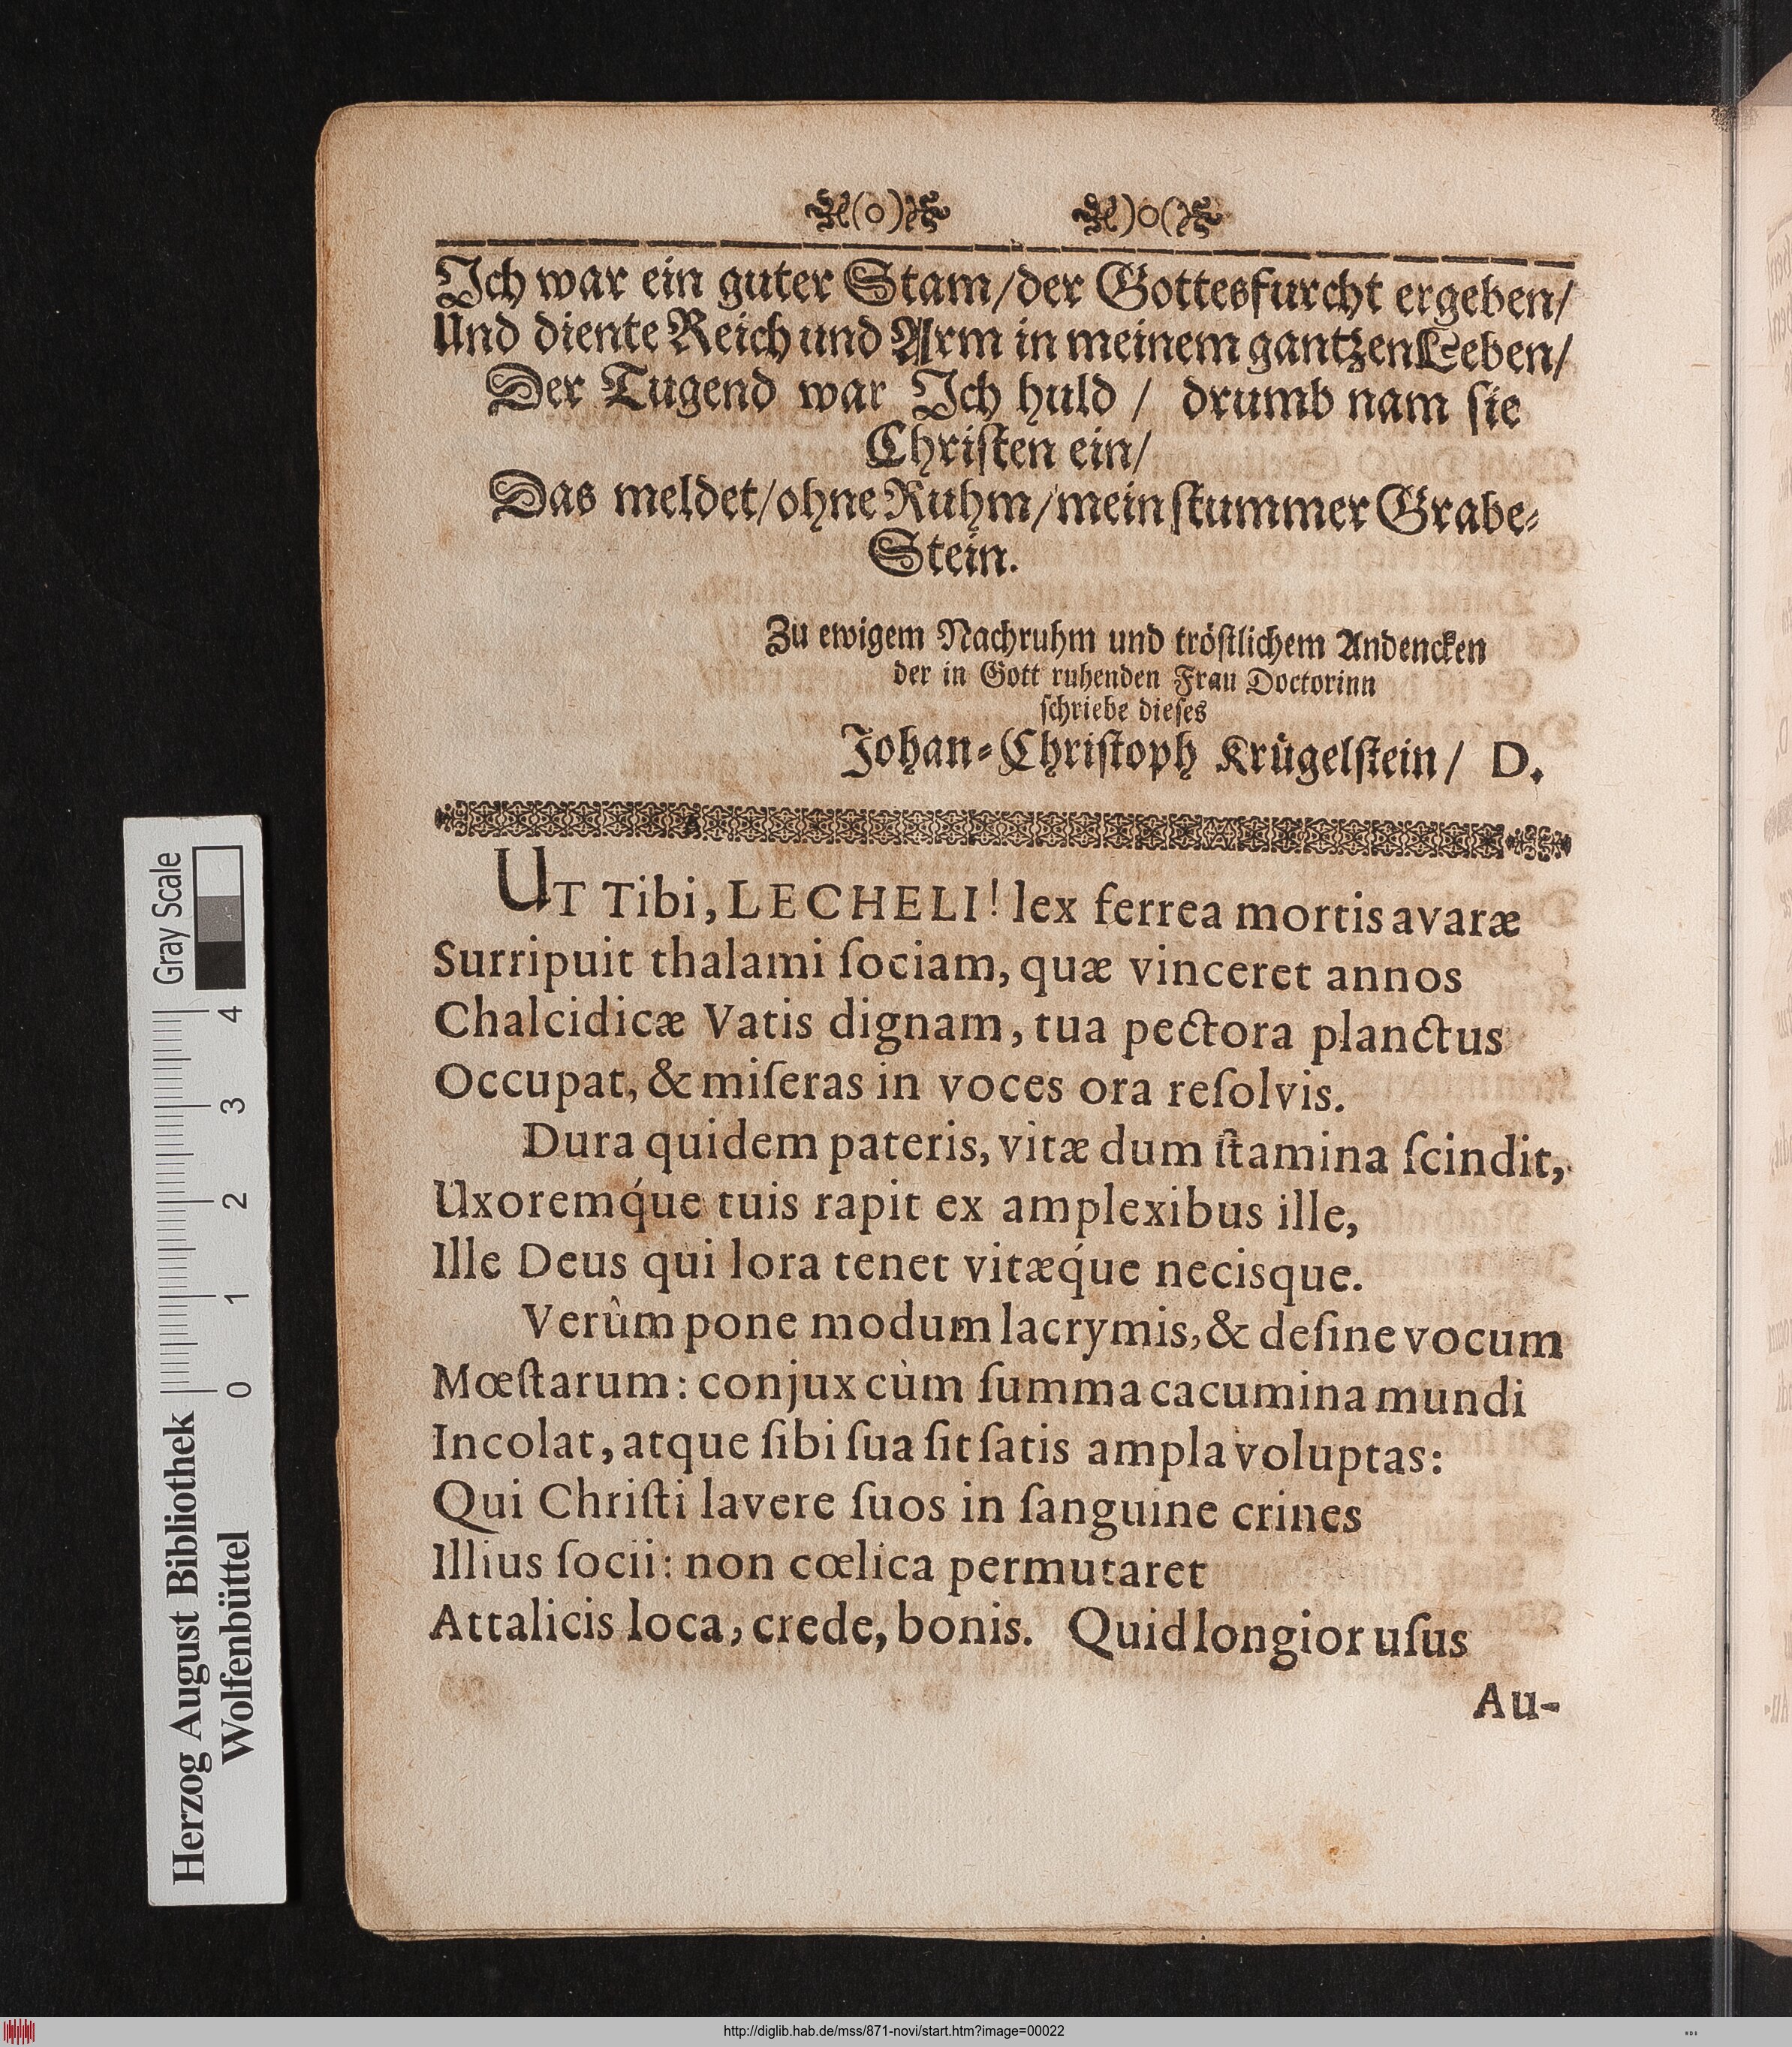 (o) )o(
Ich war ein guter Stam/der Gottesfurcht ergeben/
Und diente Reich und Arm in meinem gantzen Leben/
Der Tugend war Ich huld / drumb nam sie
Christen ein/
Das meldet/ohne Ruhm/mein stummer Grabe-
Stein.
Zu ewigem Nachruhm und tröstlichem Andencken
der in Gott ruhenden Frau Doctorinn
schriebe dieses
Johan-Christoph Krügelstein/ D.
UT Tibi, LECHELI! lex ferrea mortis avaræ
Surripuit thalami ſociam, quæ vinceret annos
Chalcidicæ Vatis dignam, tua pectora planctus
Occupat, & miſeras in voces ora reſolvis.
Dura quidem pateris, vitæ dum ſtamina ſcindit,
Uxoremq́ue tuis rapit ex amplexibus ille,
Ille Deus qui lora tenet vitæq́ue necisque.
Verûm pone modum lacrymis, & deſine vocum
Mœſtarum: conjux cùm ſumma cacumina mundi
Incolat, atque ſibi ſua ſit ſatis ampla voluptas:
Qui Chriſti lavere ſuos in ſanguine crines
Illius ſocii: non cœlica permutaret
Attalicis loca, crede, bonis. Quid longior uſus
Au-
Herzog August Bibliothek
Wolfenbüttel
0 1 2 3 4
Gray Scale
http://diglib.hab.de/mss/871-novi/start.htm?image=00022